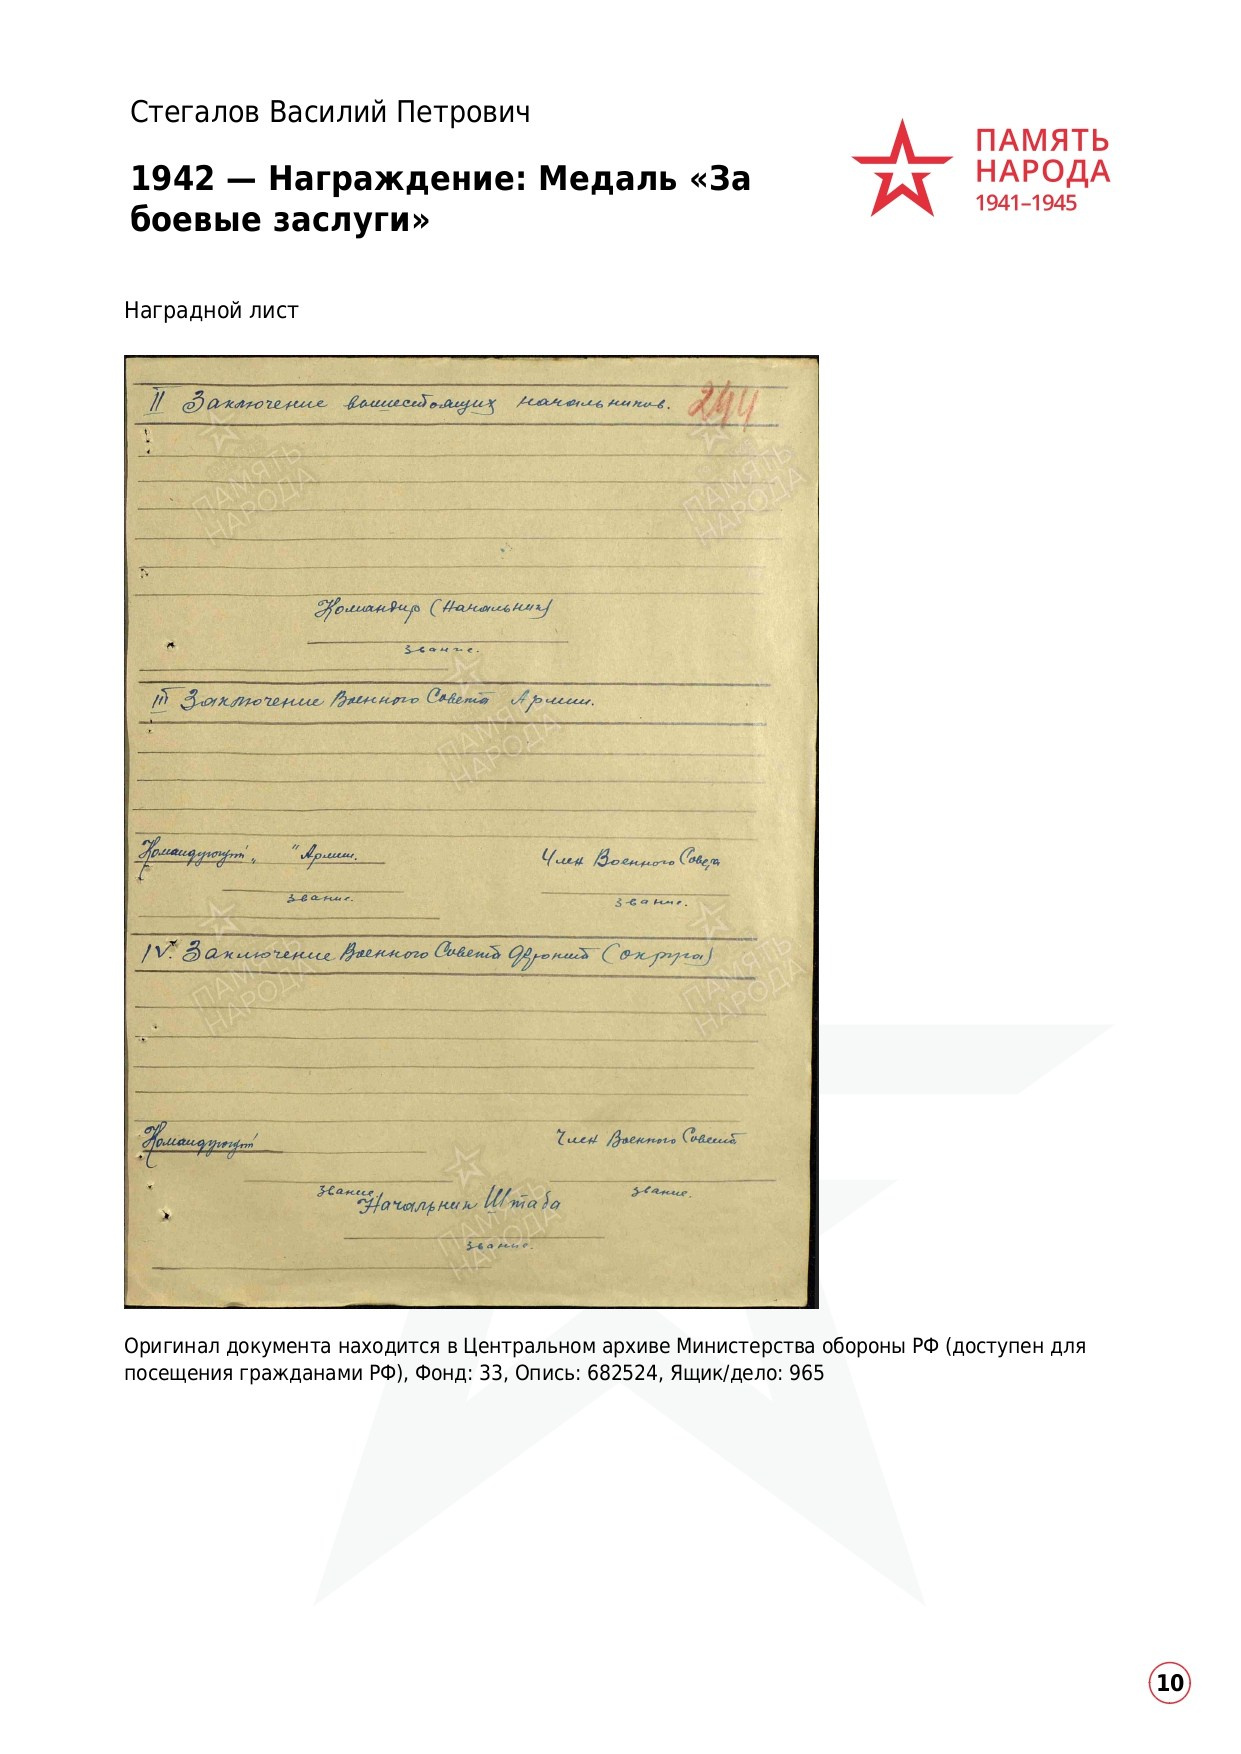 Стегалов Василий Петрович
1942 — Награждение: Медаль «За
боевые заслуги»
ПАМЯТЬ
НАРОДА
1941–1945
Наградной лист
II Заключение вышестоящих начальников. 244
Командир (Начальник)
звание.
III Заключение Военного Совета Армии.
Командующий " " Армии.
Член Военного Совета
звание.
звание.
IV. Заключение Военного Совета Фронта (округа)
Командующий
Член Военного Совета
звание.
звание.
Начальник Штаба
звание.
ПАМЯТЬ
НАРОДА
ПАМЯТЬ
НАРОДА
ПАМЯТЬ
НАРОДА
ПАМЯТЬ
НАРОДА
ПАМЯТЬ
НАРОДА
ПАМЯТЬ
НАРОДА
Оригинал документа находится в Центральном архиве Министерства обороны РФ (доступен для
посещения гражданами РФ), Фонд: 33, Опись: 682524, Ящик/дело: 965
10